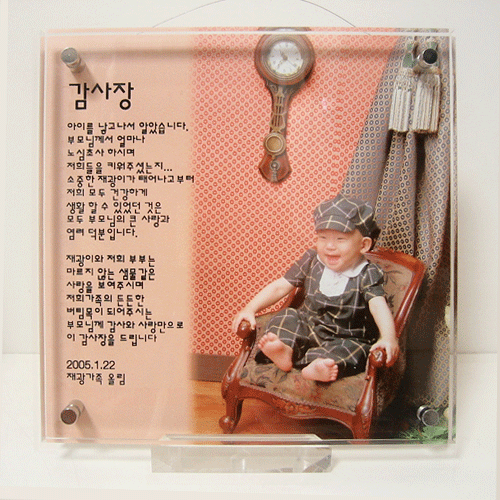 감사장
아이를 낳고나서 알았습니다.
부모님께서 얼마나
노심초사 하시며
저희들을 키워주셨는지...
소중한 재광이가 태어나고부터
저희 모두 건강하게
생활 할 수 있었던 것은
모두 부모님의 큰 사랑과
염려 덕분입니다.
재광이와 저희 부부는
마르지 않는 샘물같은
사랑을 보여주시며
저희가족의 든든한
버팀목이 되어주시는
부모님께 감사와 사랑만으로
이 감사장을 드립니다
2005.1.22
재광가족 올림